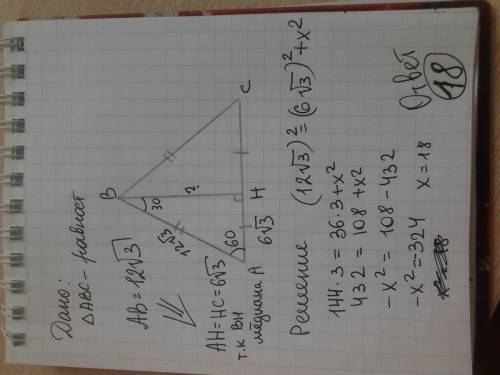 Дано:
△ABC - равност
AB = 12√3
AH = HC = 6√3
т.к BH
медиана
B
30
?
12√3
60
A
6√3
H
C
Решение (12√3)² = (6√3)² + x²
144·3 = 36·3 + x²
432 = 108 + x²
-x² = 108 - 432
-x² = -324 x = 18
Ответ
18